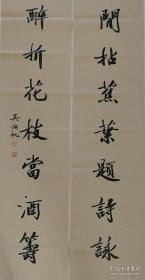 閒拈蕉葉題詩詠
醉折花枝當酒籌
吳湖帆